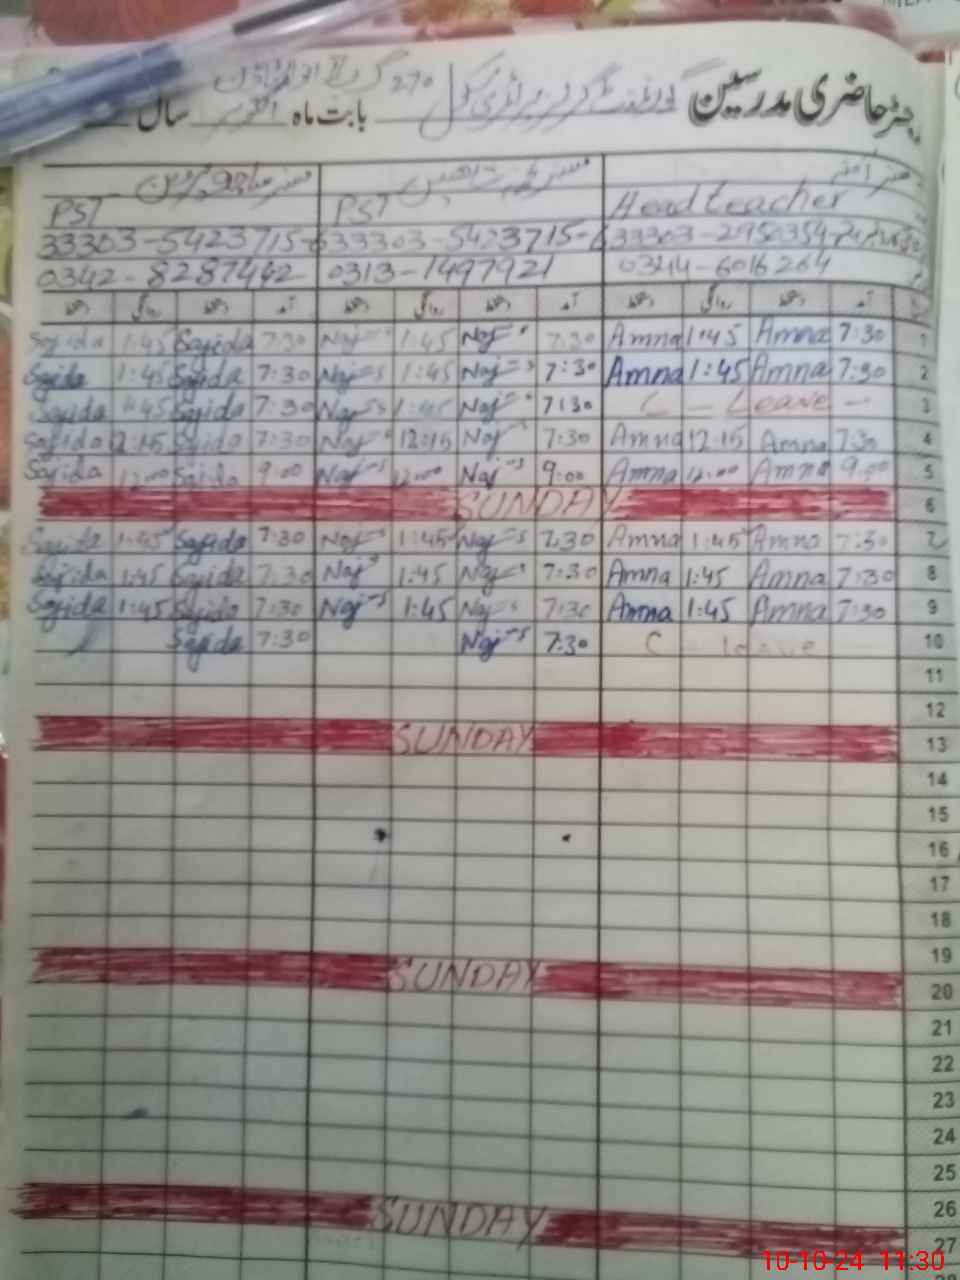 رجسٹر حاضری مدرسین گورنمنٹ گرلز پرائمری سکول 270 گ ب
بابت ماہ اکتوبر سال
PST PST Head teacher
33303-5423715-6 33303-5423715-6 33303-2950354-
0342-8287442 0313-1497921 0344-6016264
دستخط روانگی دستخط آمد دستخط روانگی دستخط آمد دستخط روانگی دستخط آمد
Sajida 1:45 Sajida 7:30 Naj 1:45 Naj 7:30 Amna 1:45 Amna 7:30 1
Sajida 1:45 Sajida 7:30 Naj 1:45 Naj 7:30 Amna 1:45 Amna 7:30 2
Sajida 1:45 Sajida 7:30 Naj 1:45 Naj 7:30 C - Leave - 3
Sajida 12:15 Sajida 7:30 Naj 12:15 Naj 7:30 Amna 12:15 Amna 7:30 4
Sajida 12:00 Sajida 9:00 Naj 12:00 Naj 9:00 Amna 12:00 Amna 9:00 5
SUNDAY 6
Sajida 1:45 Sajida 7:30 Naj 1:45 Naj 7:30 Amna 1:45 Amna 7:30 7
Sajida 1:45 Sajida 7:30 Naj 1:45 Naj 7:30 Amna 1:45 Amna 7:30 8
Sajida 1:45 Sajida 7:30 Naj 1:45 Naj 7:30 Amna 1:45 Amna 7:30 9
Sajida 7:30 Naj 7:30 C leave 10
11
12
SUNDAY 13
14
15
16
17
18
19
SUNDAY 20
21
22
23
24
25
26
SUNDAY 27
10-10-24 11:30